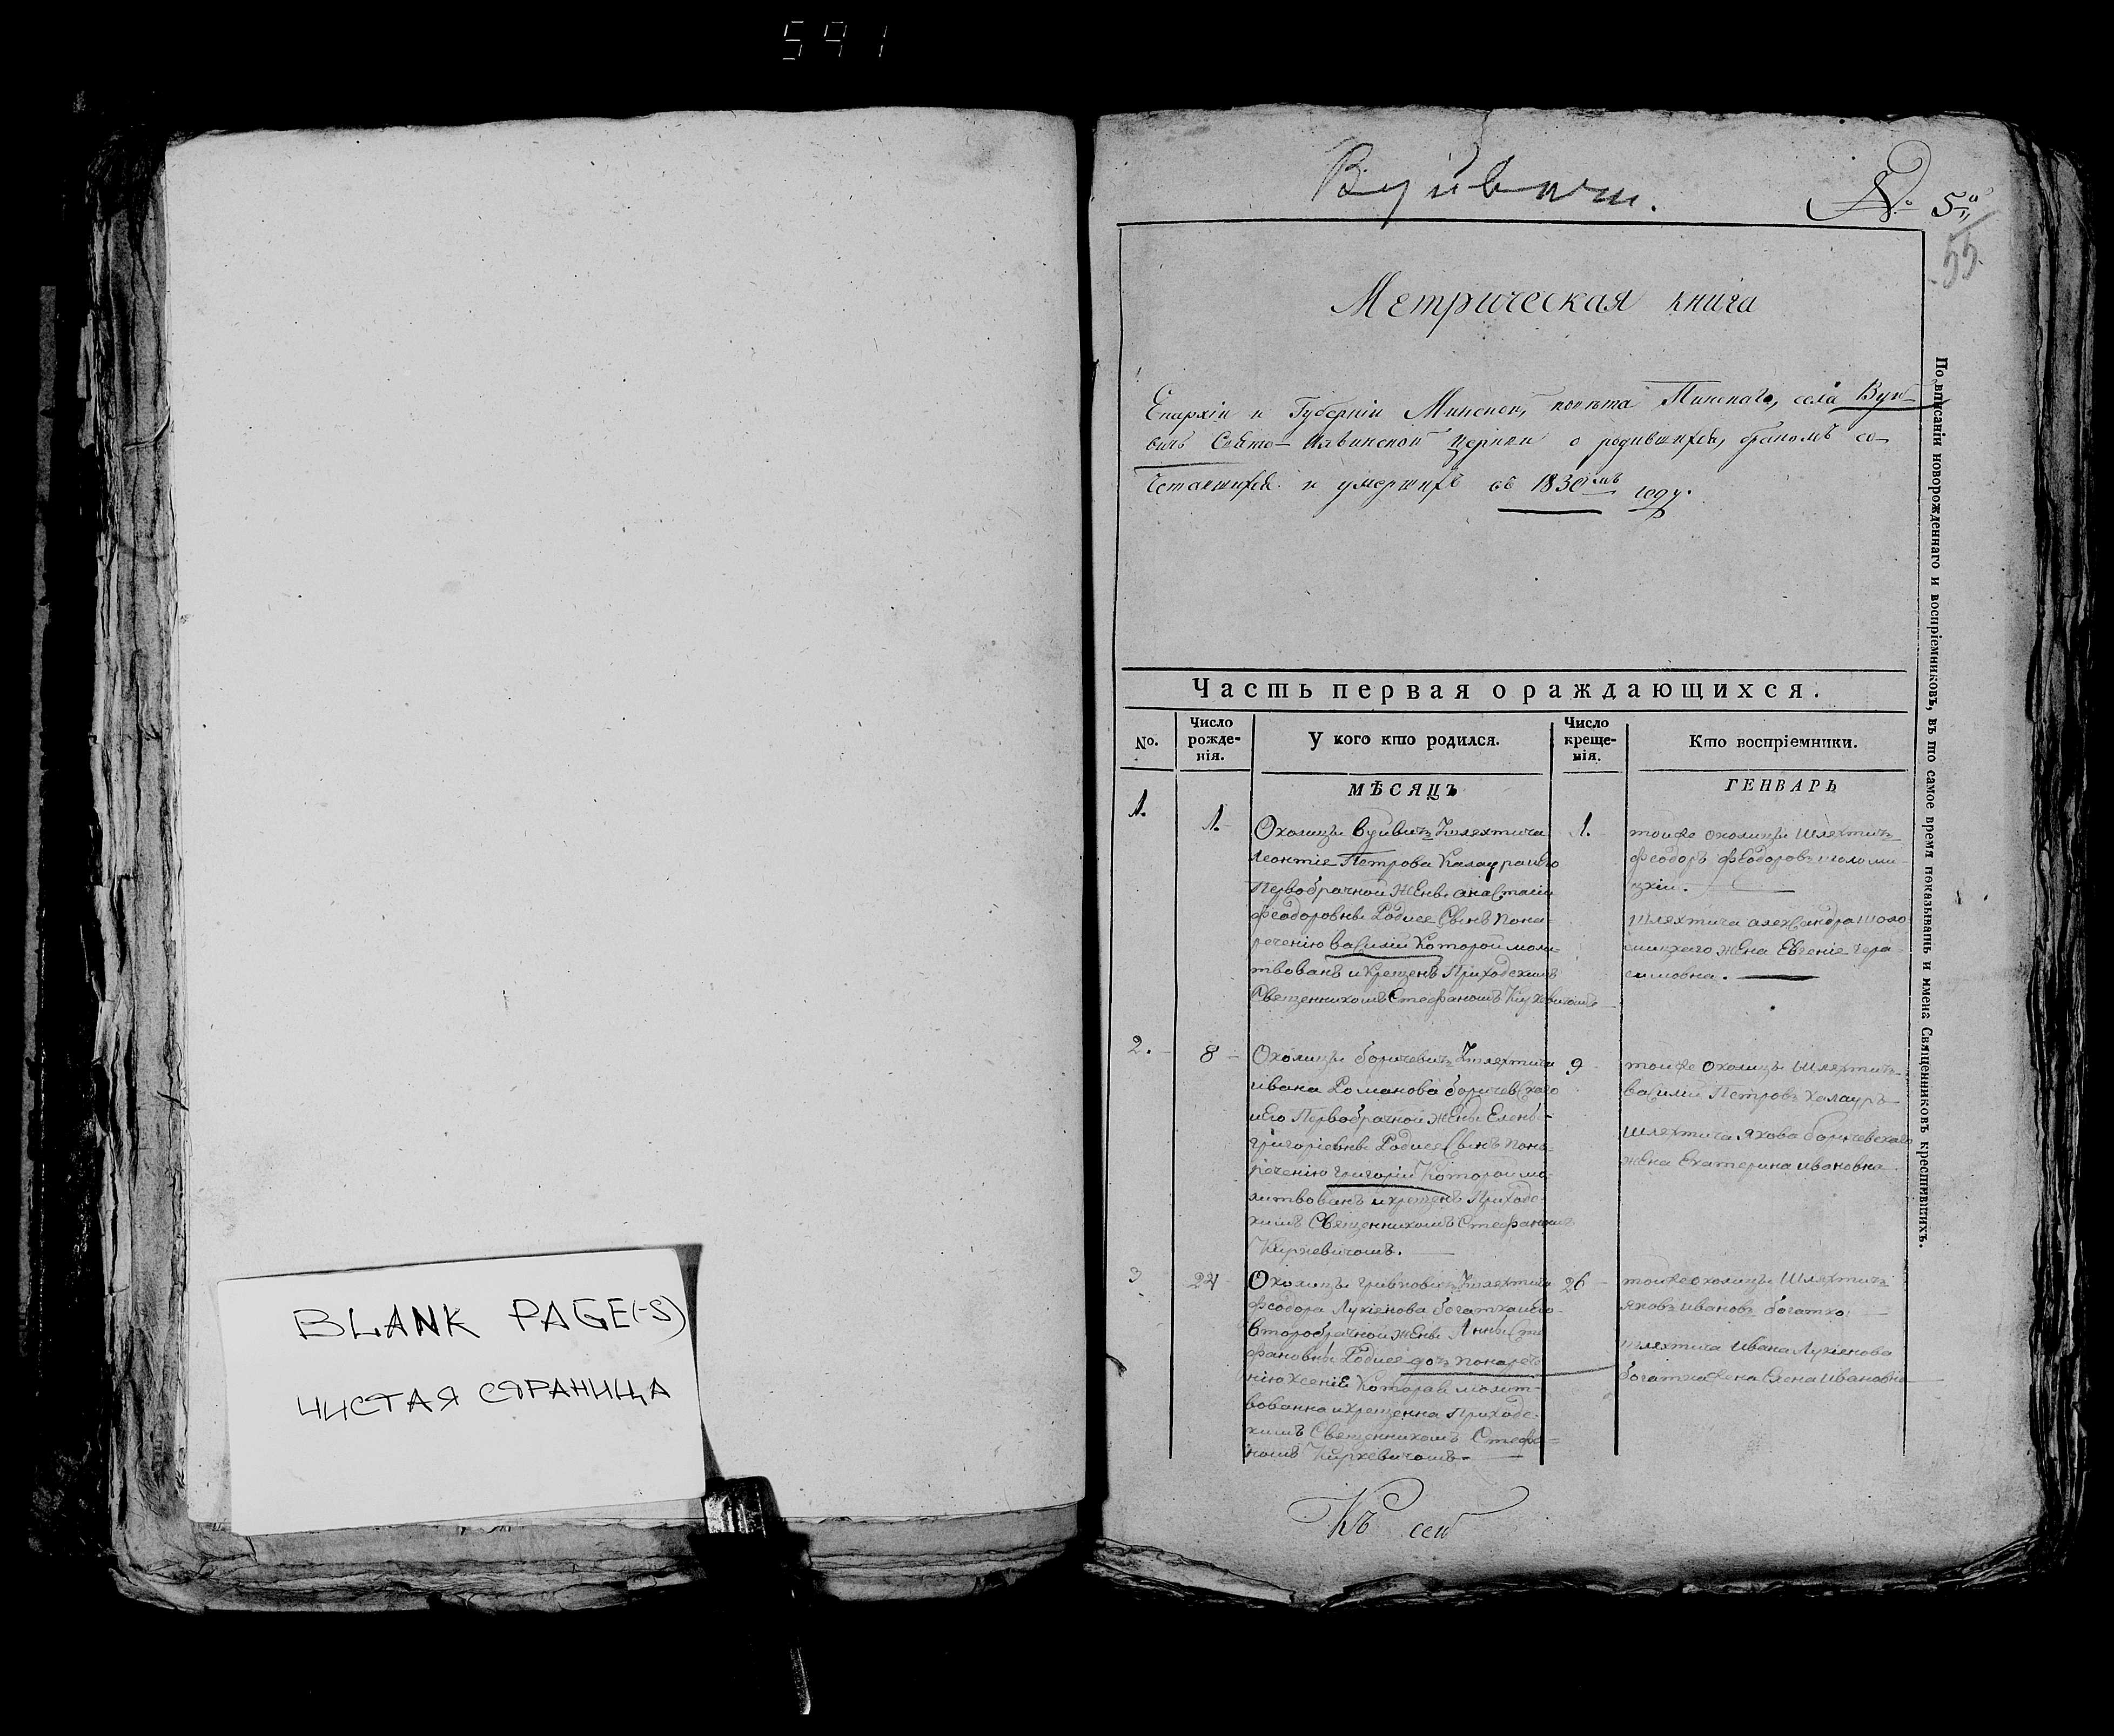 591
BLANK PAGE(-S)
ЧИСТАЯ СТРАНИЦА
Вуйвичи.
№ 5й
55.
Метрическая книга
Епархіи и Губерніи Минской, повѣта Пинскаго, села Вуй-
вичь Свято- церкви о родившихся, бракомъ со-
четавшихся и умершихъ въ 1830мъ году.
Часть первая о раждающихся.
No.
Число рожде-нія.
У кого кто родился.
Число креще-нія.
Кто воспріемники.
МѢСЯЦЪ
ГЕНВАРЬ
1.
1.
Околицы Вуивичъ Шляхтича
Леонтіе Петрова Калаура иего
Первобрачной жены анастасіи
феодоровны Родися Сынъ пона-
речению василій Которой моли-
твованъ и крещенъ Приходскимъ
Священникомъ Стефаномъ
1.
тоиже околицы шляхтичъ
феодоръ феодоровъ шоломи-
цкіи.
шляхтича александра шоло
мицкаго жена Евгеніе гера-
симовна.
2.
8
Околицы боричевичъ Шляхтича
ивана Романова боричевскаго
иего Первобрачной жены Елены
григоріевны Родися Сынъ пона-
речению григорій Которой мо-
литвованъ и крещенъ Приходс-
кимъ Священникомъ Стефаномъ
Киркевичомъ.
9
тоиже околицы шляхтичъ
василий Петровъ калауръ
шляхтича якова боричевскаго
жена Екатерина ивановна
3
24
Околицы Шляхтича
феодора Лукіенова богатка иего
второбрачной жены Анны Сте
фановны Родися дочь понарече
нію ксеніе Которая молит-
вованна и крещенна Приходс-
кимъ Священникомъ Стефа-
номъ Киркевичомъ.
26
тоиже околицы шляхтичъ
яковъ ивановъ богатко
шляхтича ивана Лукіенова
богатка жена Елена ивановна
Къ сей
По вписаніи новорожденнаго и воспріемниковъ, въ то самое время показывать и имена Священниковъ крестившихъ.